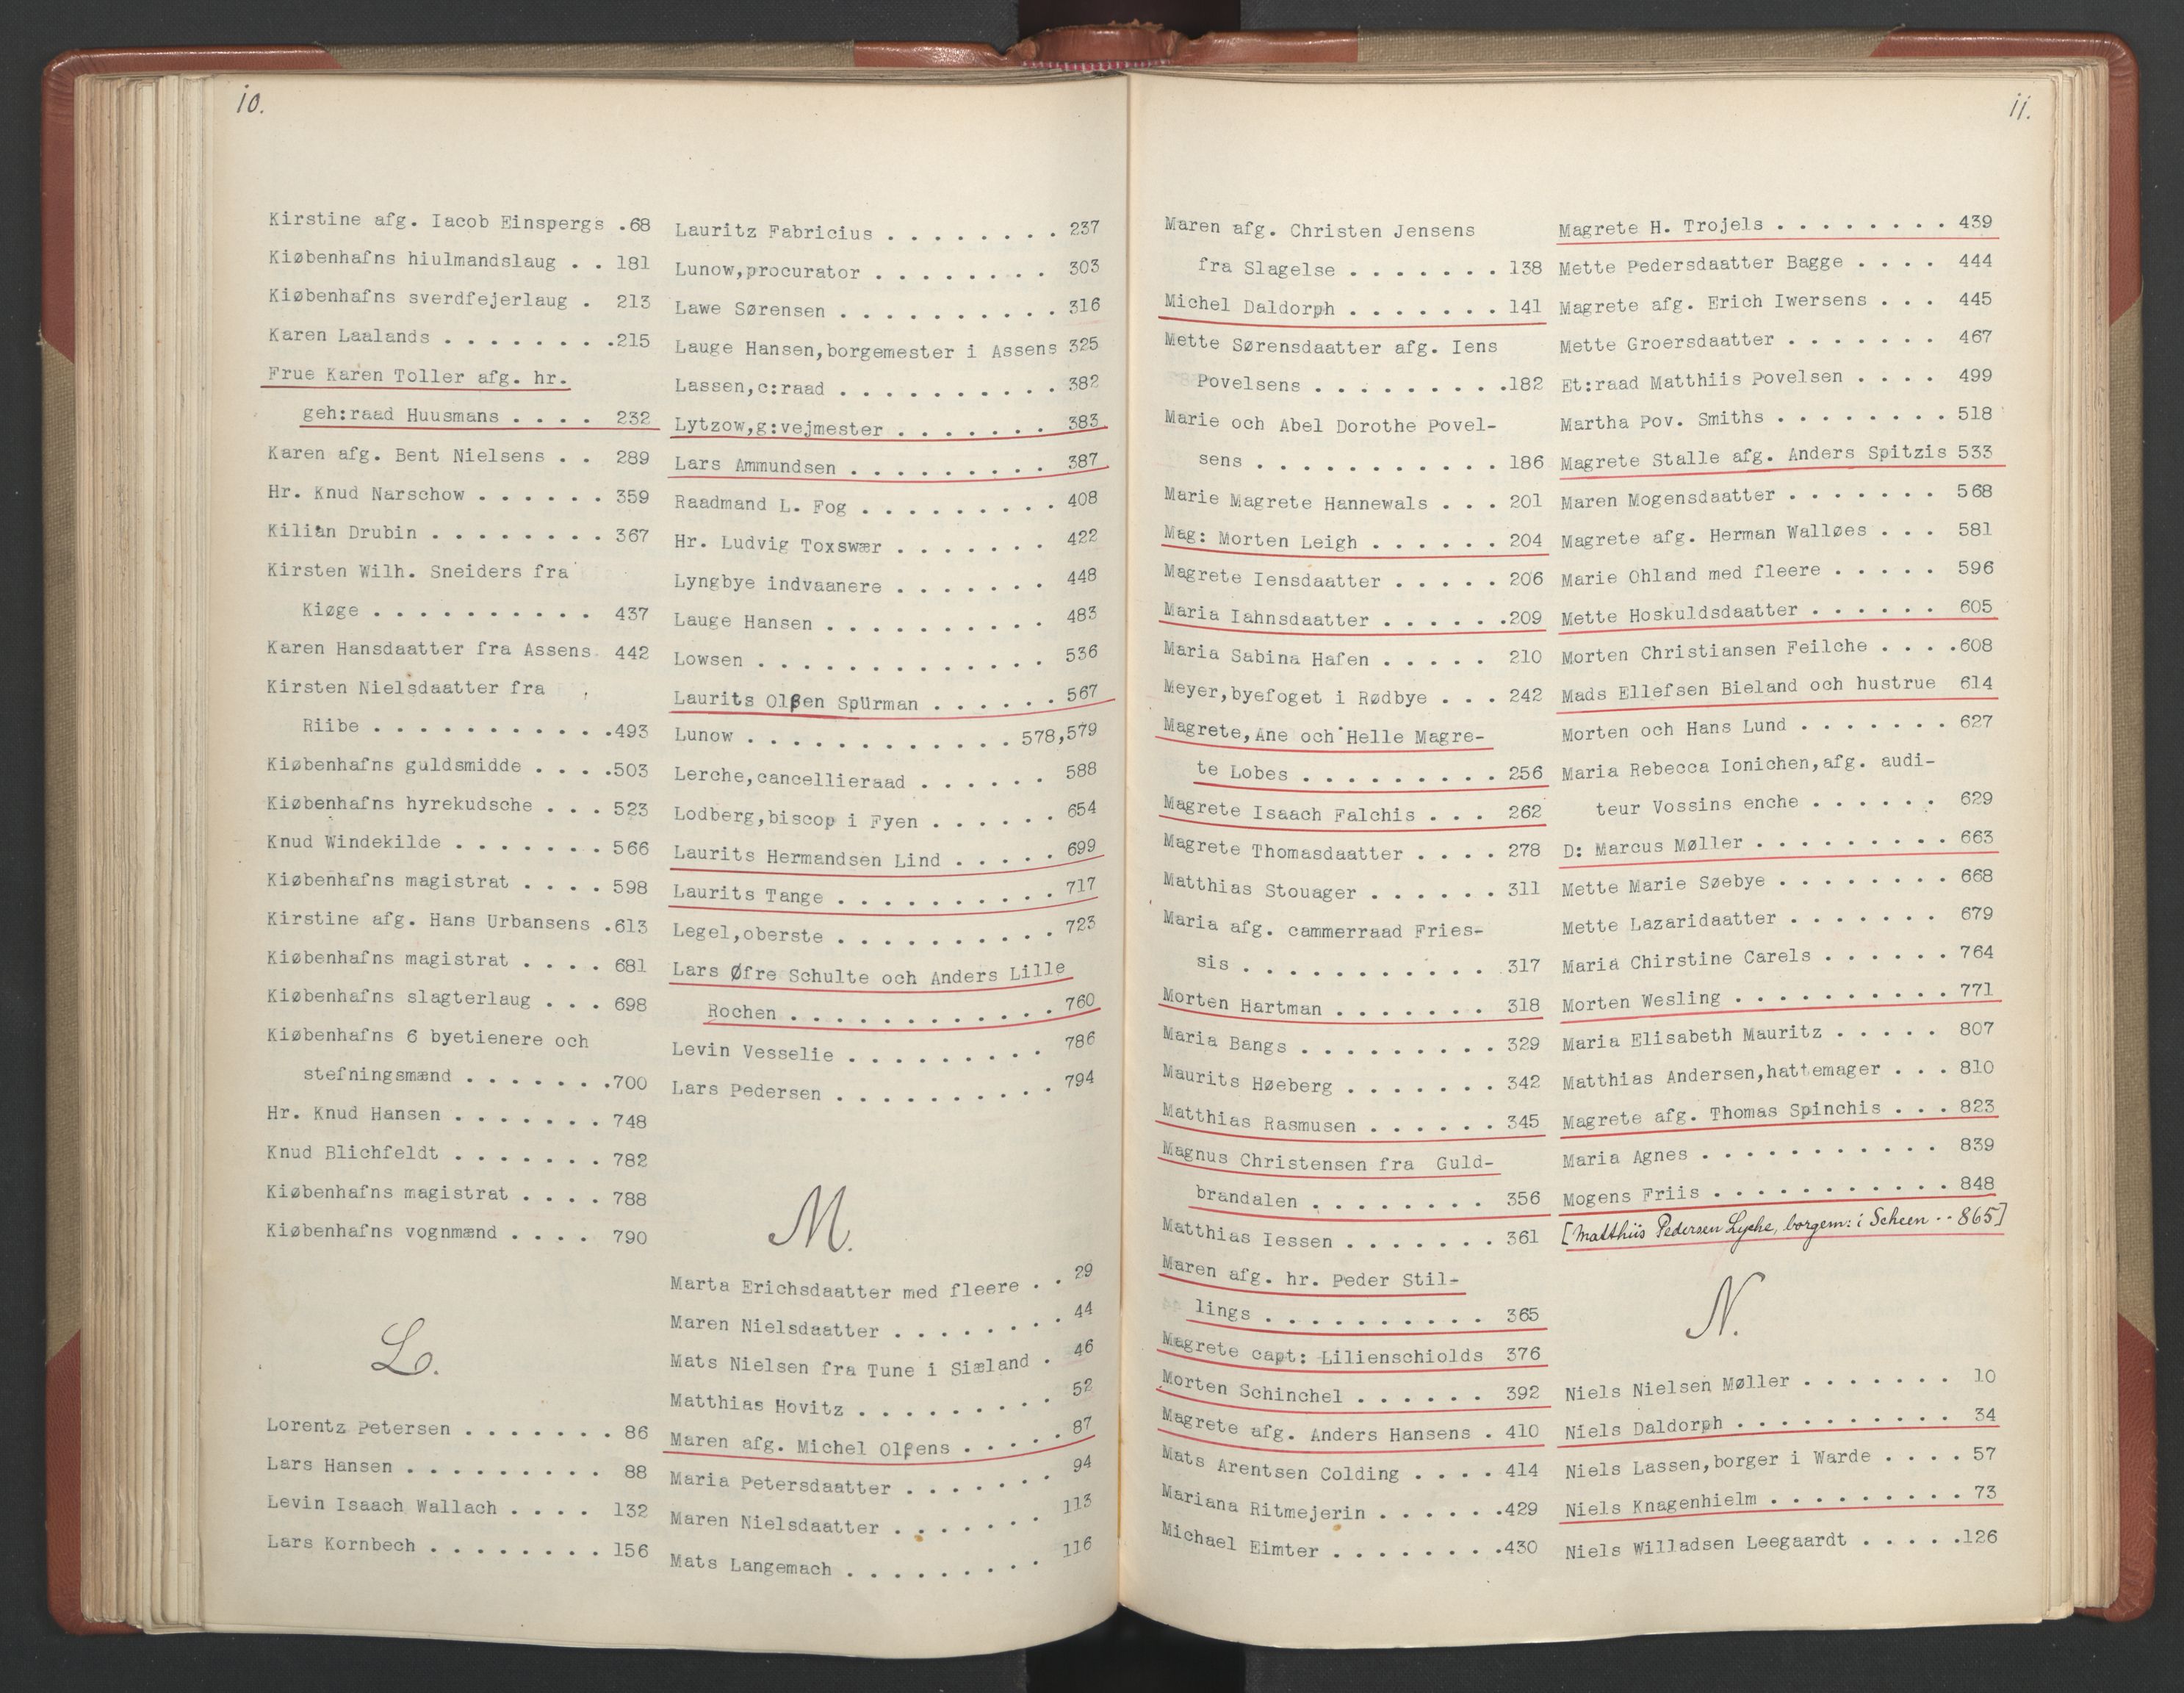 10.
Kirstine afg. Iacob Einspergs .68
Kiøbenhafns hiulmandslaug . . 181
Kiøbenhafns sverdfejerlaug . 213
Karen Laalands . . . . . . . .215
Frue Karen Toller afg. hr.
geh:raad Huusmans . . . . 232
Karen afg. Bent Nielsens . . 289
Hr. Knud Narschow . . . . . . 359
Kilian Drubin . . . . . . . . 367
Kirsten Wilh. Sneiders fra
Kiøge . . . . . . . . . . 437
Karen Hansdaatter fra Assens 442
Kirsten Nielsdaatter fra
Riibe . . . . . . . . . . .493
Kiøbenhafns guldsmidde . . . .503
Kiøbenhafns hyrekudsche . . . 523
Knud Windekilde . . . . . . . 566
Kiøbenhafns magistrat . . . . 598
Kirstine afg. Hans Urbansens .613
Kiøbenhafns magistrat . . . . 681
Kiøbenhafns slagterlaug . . . 698
Kiøbenhafns 6 byetienere och
stefningsmænd . . . . . . .700
Hr. Knud Hansen . . . . . . . 748
Knud Blichfeldt . . . . . . . 782
Kiøbenhafns magistrat . . . . 788
Kiøbenhafns vognmænd . . . . 790
L.
Lorentz Petersen . . . . . . . 86
Lars Hansen . . . . . . . . . 88
Levin Isaach Wallach . . . . 132
Lars Kornbech . . . . . . . . 156
Lauritz Fabricius . . . . . . . . 237
Lunow,procurator . . . . . . . . 303
Lawe Sørensen . . . . . . . . . . 316
Lauge Hansen,borgemester i Assens 325
Lassen,c:raad . . . . . . . . . . 382
Lytzow,g:vejmester . . . . . . . 383
Lars Ammundsen . . . . . . . . . 387
Raadmand L. Fog . . . . . . . . . 408
Hr. Ludvig Toxswær . . . . . . . 422
Lyngbye indvaanere . . . . . . . 448
Lauge Hansen . . . . . . . . . . 483
Lowsen . . . . . . . . . . . . . 536
Laurits Olßen Spürman . . . . . . 567
Lunow . . . . . . . . . . . . 578,579
Lerche,cancellieraad . . . . . . 588
Lodberg,biscop i Fyen . . . . . . 654
Laurits Hermandsen Lind . . . . . 699
Laurits Tange . . . . . . . . . . 717
Legel,oberste . . . . . . . . . . 723
Lars Øfre Schulte och Anders Lille
Rochen . . . . . . . . . . . . 760
Levin Vesselie . . . . . . . . . 786
Lars Pedersen . . . . . . . . . . 794
M.
Marta Erichsdaatter med fleere . . 29
Maren Nielsdaatter . . . . . . . . 44
Mats Nielsen fra Tune i Siæland . 46
Matthias Hovitz . . . . . . . . . 52
Maren afg. Michel Olßens . . . . . 87
Maria Petersdaatter . . . . . . . 94
Maren Nielsdaatter . . . . . . . 113
Mats Langemach . . . . . . . . . 116
11.
Maren afg. Christen Jensens
fra Slagelse . . . . . . . 138
Michel Daldorph . . . . . . . 141
Mette Sørensdaatter afg. Iens
Povelsens . . . . . . . . .182
Marie och Abel Dorothe Povel-
sens . . . . . . . . . . . 186
Marie Magrete Hannewals . . . 201
Mag: Morten Leigh . . . . . . 204
Magrete Iensdaatter . . . . . 206
Maria Iahnsdaatter . . . . . .209
Maria Sabina Hafen . . . . . 210
Meyer,byefoget i Rødbye . . . 242
Magrete,Ane och Helle Magre-
te Lobes . . . . . . . . . 256
Magrete Isaach Falchis . . . 262
Magrete Thomasdaatter . . . . 278
Matthias Stouager . . . . . . 311
Maria afg. cammerraad Fries-
sis . . . . . . . . . . . 317
Morten Hartman . . . . . . . 318
Maria Bangs . . . . . . . . . 329
Maurits Høeberg . . . . . . . 342
Matthias Rasmusen . . . . . . 345
Magnus Christensen fra Guld-
brandalen . . . . . . . . 356
Matthias Iessen . . . . . . . 361
Maren afg. hr. Peder Stil-
lings . . . . . . . . . . 365
Magrete capt: Lilienschiolds 376
Morten Schinchel . . . . . . 392
Magrete afg. Anders Hansens . 410
Mats Arentsen Colding . . . . 414
Mariana Ritmejerin . . . . . .429
Michael Eimter . . . . . . . .430
Magrete H. Trojels . . . . . . . . 439
Mette Pedersdaatter Bagge . . . . 444
Magrete afg. Erich Iwersens . . . 445
Mette Groersdaatter . . . . . . . 467
Et:raad Matthiis Povelsen . . . . 499
Martha Pov. Smiths . . . . . . . . 518
Magrete Stalle afg. Anders Spitzis 533
Maren Mogensdaatter . . . . . . . 568
Magrete afg. Herman Walløes . . . 581
Marie Ohland med fleere . . . . . 596
Mette Hoskuldsdaatter . . . . . . 605
Morten Christiansen Feilche . . . .608
Mads Ellefsen Bieland och hustrue 614
Morten och Hans Lund . . . . . . . 627
Maria Rebecca Ionichen,afg. audi-
teur Vossins enche . . . . . . 629
D: Marcus Møller . . . . . . . . . 663
Mette Marie Søebye . . . . . . . . 668
Mette Lazaridaatter . . . . . . . 679
Maria Chirstine Carels . . . . . . 764
Morten Wesling . . . . . . . . . . 771
Maria Elisabeth Mauritz . . . . . 807
Matthias Andersen,hattemager . . . 810
Magrete afg. Thomas Spinchis . . . 823
Maria Agnes . . . . . . . . . . . 839
Mogens Friis . . . . . . . . . . . 848
[Matthiis Pedersen Lyche, borgem: i Scheen . . 865]
N.
Niels Nielsen Møller . . . . . . . 10
Niels Daldorph . . . . . . . . . . 34
Niels Lassen,borger i Warde . . . . 57
Niels Knagenhielm . . . . . . . . . 73
Niels Willadsen Leegaardt . . . . .126